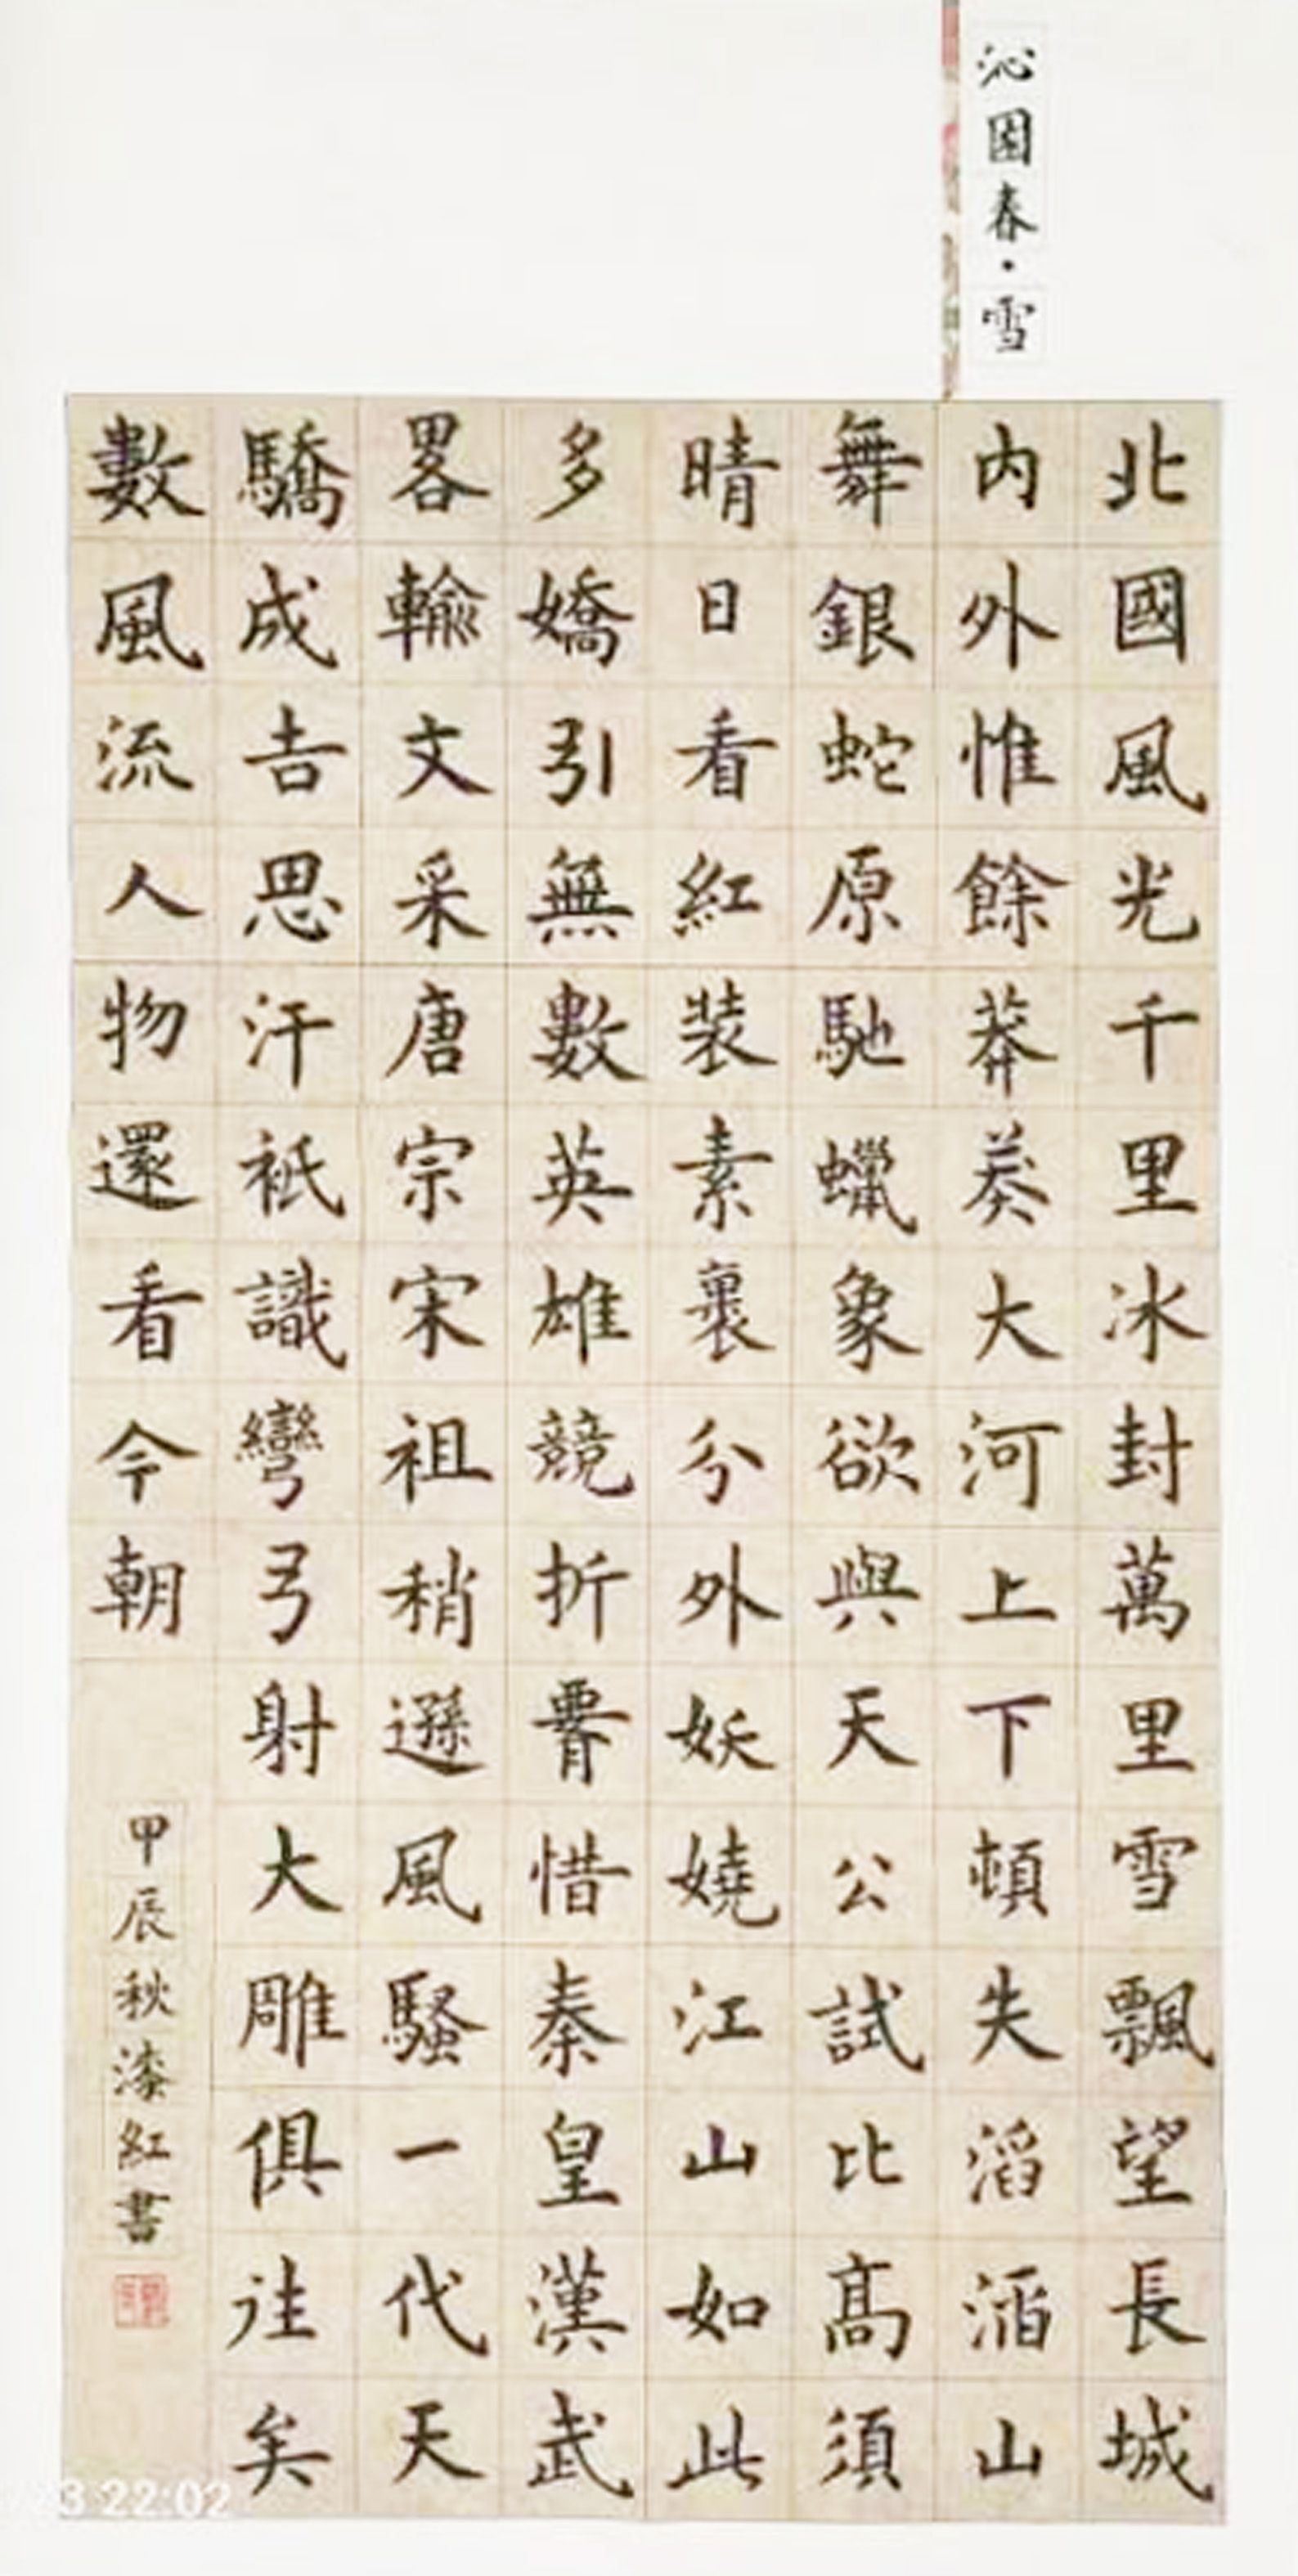 沁園春·雪
北國風光千里冰封萬里雪飄望長城
内外惟餘莽莽大河上下頓失滔滔山
舞銀蛇原馳蠟象欲與天公試比高須
晴日看紅裝素裹分外妖嬈江山如此
多嬌引無數英雄競折要惜秦皇漢武
畧輸文采唐宗宋祖稍遜風騷一代天
驕成吉思汗衹識彎弓射大雕俱往矣
數風流人物還看今朝
甲辰秋漆紅書
3 22:02